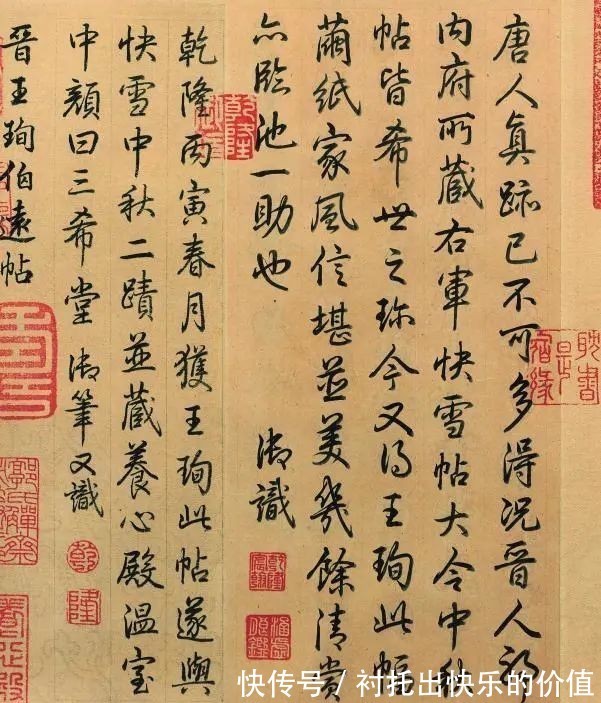 唐人真跡已不可多得况晉人耶
内府所藏右軍快雪帖大令中秋
帖皆希世之珍今又得王珣此幅
繭紙家風信堪並美幾餘清賞
亦臨池一助也 御識
乾隆丙寅春月獲王珣此帖遂與
快雪中秋二蹟並藏養心殿溫室
中顏曰三希堂 御筆又識
晉王珣伯遠帖
耽書是宿緣
乾隆
乾
隆
快传号 / 衬托出快乐的价值